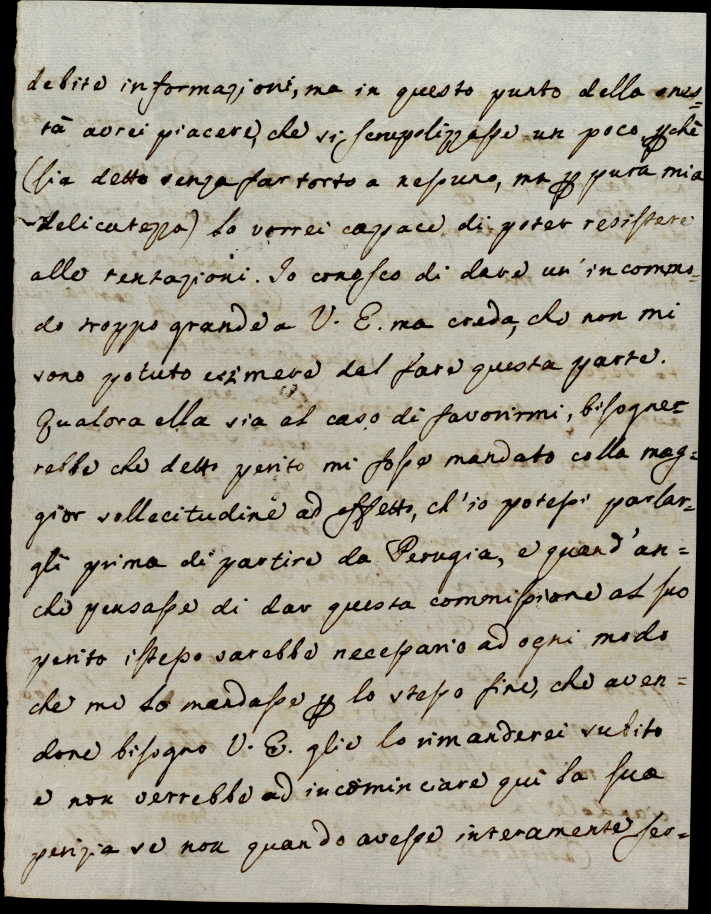 debite informazioni, ma in questo punto della ones=
tà avrei piacere, che si scrupolizzasse un poco, pchè
(sia detto senza far torto a nessuno, ma p pura mia
delicatezza) lo vorrei capace di poter resistere
alle tentazioni. Io conosco di dare un' incommo=
do troppo grande a V. E. ma creda, che non mi
sono potuto esimere dal fare questa parte.
Qualora ella sia al caso di favorirmi, bisogne=
rebbe che detto perito mi fosse mandato colla mag=
gior sollecitudine ad effetto, ch'io potessi parlar=
gli prima di partire da Perugia, e quand'an=
che pensasse di dar questa commissione al suo
perito istesso sarebbe necessario ad ogni modo
che me lo mandasse p lo stesso fine, che aven=
done bisogno V. E. glie lo rimanderei subito
e non verrebbe ad incominciare quì la sua
perizia se non quando avesse interamente ser=